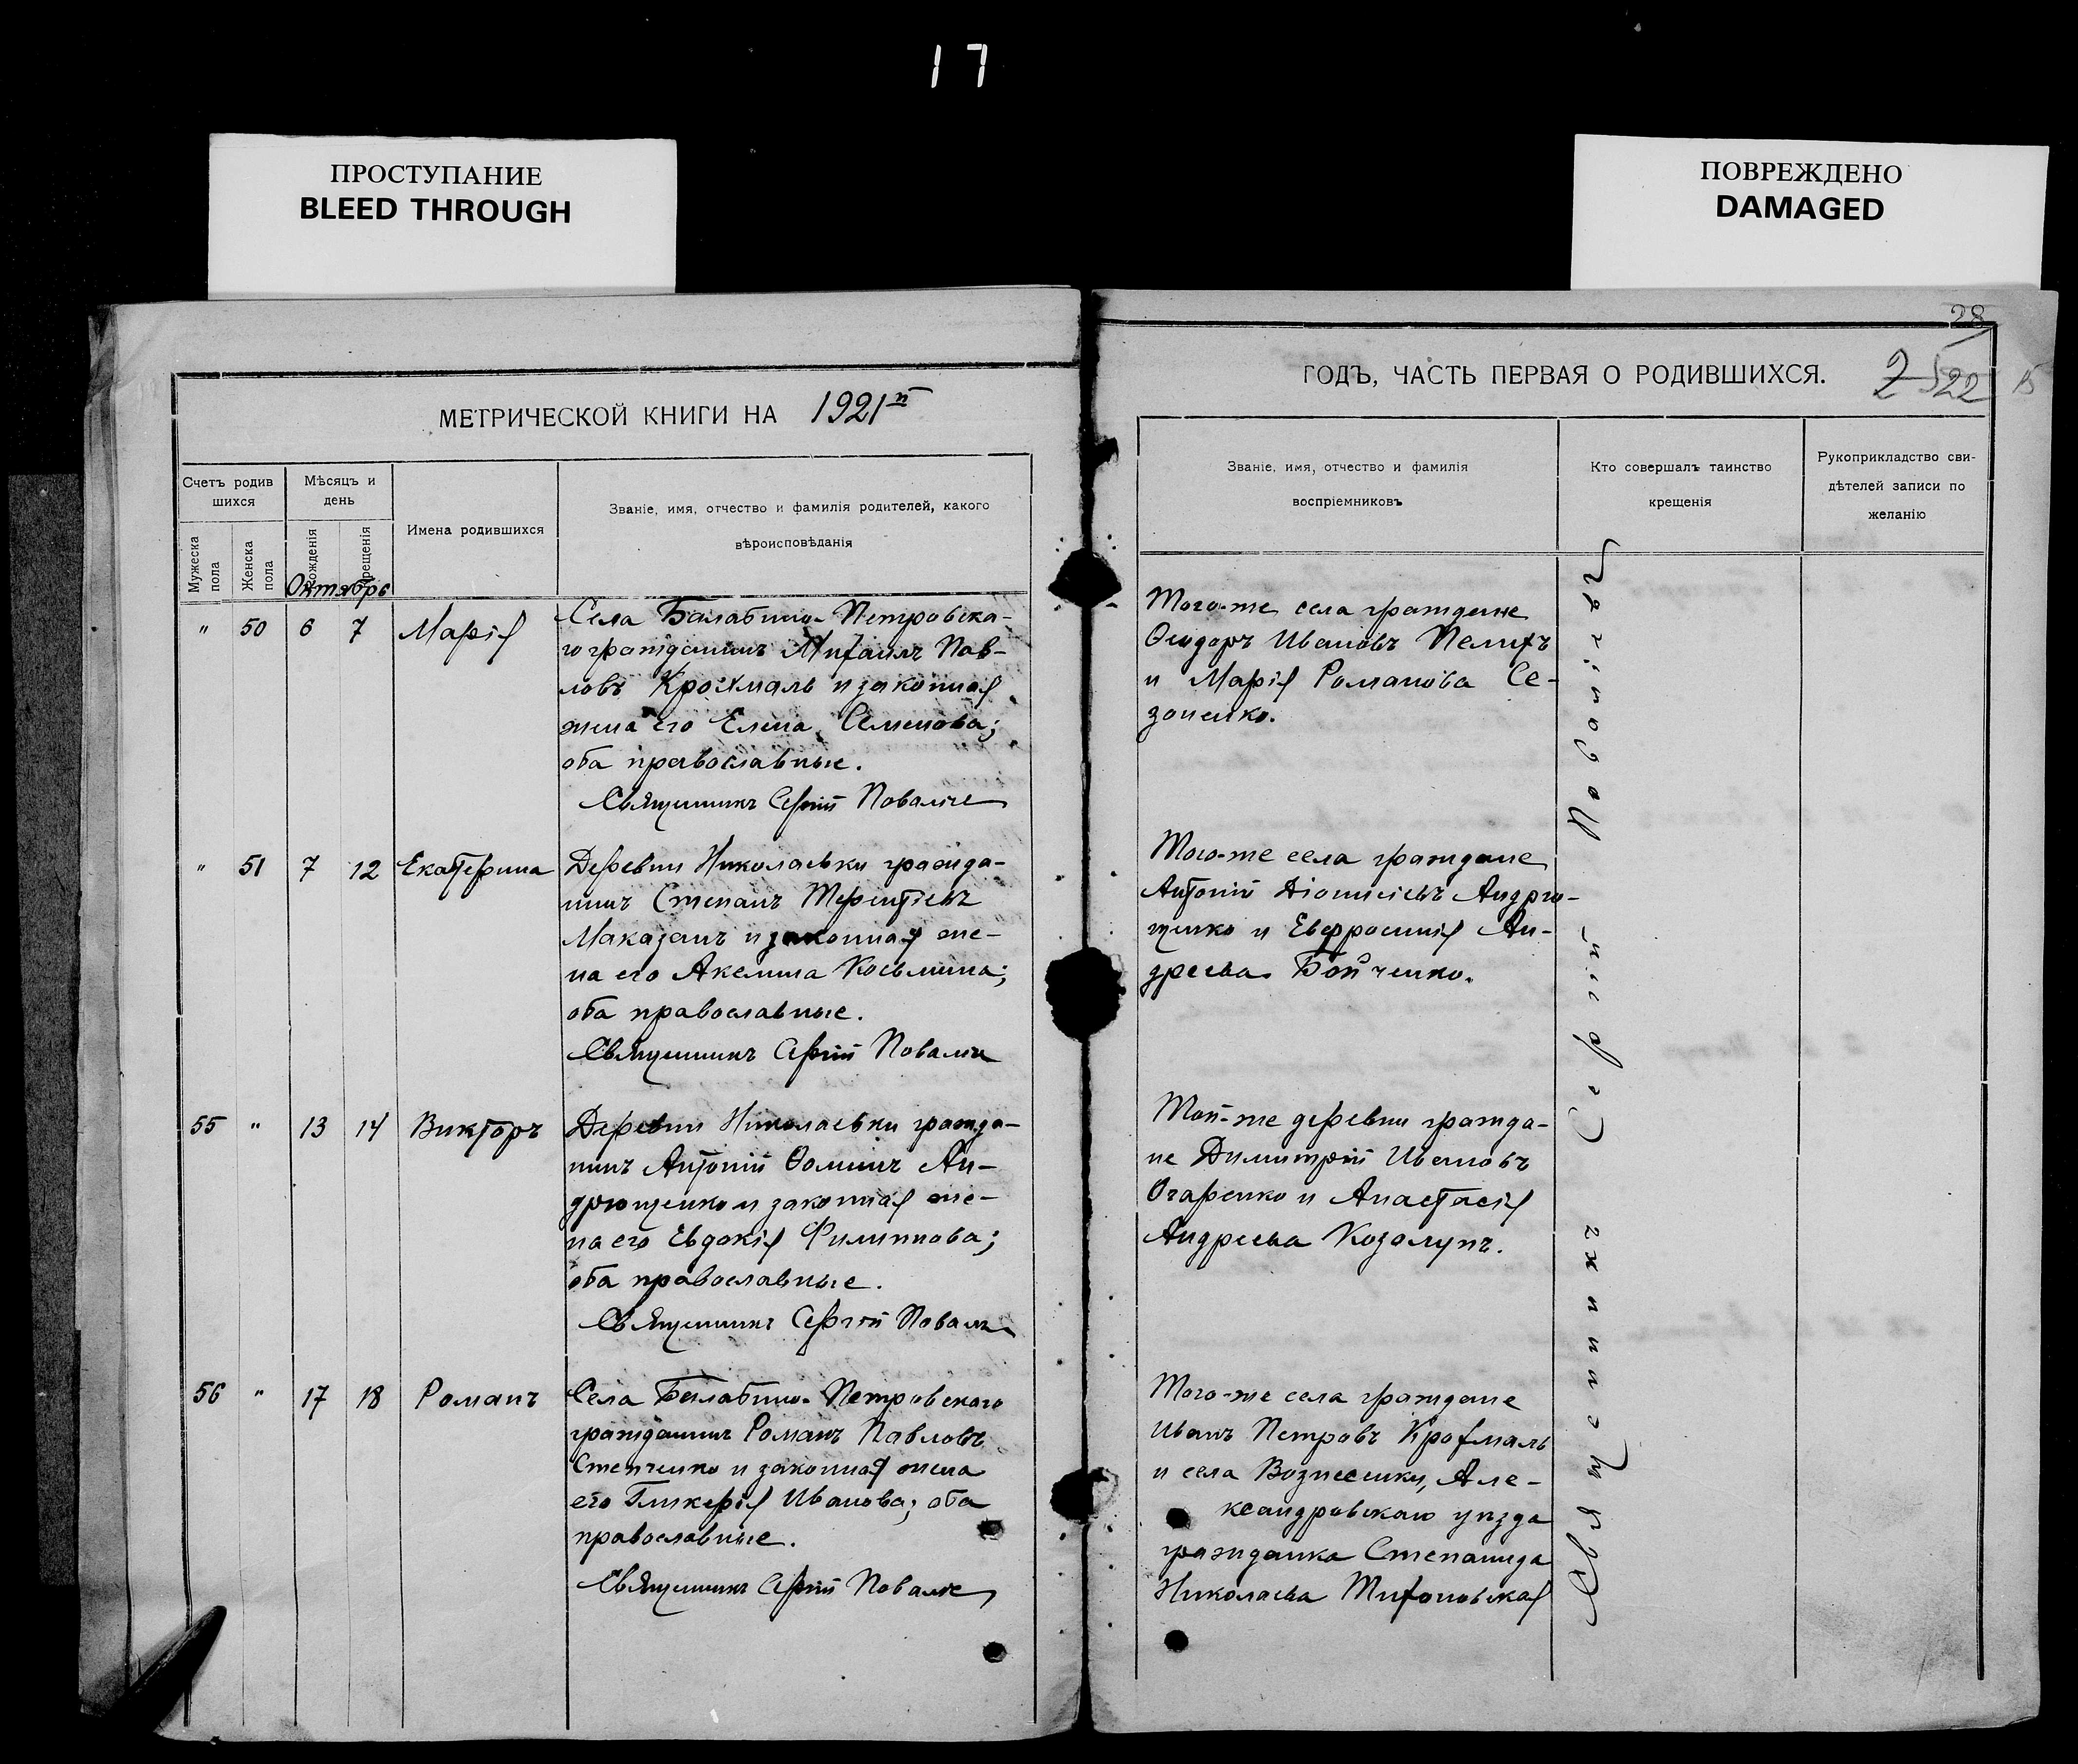 17
ПРОСТУПАНИЕ
BLEED THROUGH
ПОВРЕЖДЕНО
DAMAGED
28
МЕТРИЧЕСКОЙ КНИГИ НА 1921й
Счетъ родив
шихся
Мужеска
пола
Женска
пола
Мѣсяцъ и
день
Рожденія
Крещенія
Имена родившихся
Званіе, имя, отчество и фамилія родителей, какого
вѣроисповѣданія
Октябрь
" 50 6 7 Марія
Села Балабино-Петровска-
го гражданинъ Михаилъ Пав-
ловъ Крохмаль и законная
жена его Елена Семенова;
оба православные.
Священникъ Сергій
" 51 7 12 Екатерина
Деревни Николаевки гражда-
нинъ Степанъ Терентіевъ
Маказанъ и законная же-
на его Акелина Косьмина;
оба православные.
Священникъ Сергій
55 " 13 14 Викторъ
Деревни Николаевки гражда-
нинъ Антоній Ѳоминъ Ан-
дрющенко и законная же-
на его Евдокія Филиппова;
оба православные.
Священникъ Сергій
56 " 17 18 Романъ
Села Балабино-Петровскаго
гражданинъ Романъ Павловъ
Степченко и законная жена
его Гликерія Иванова; оба
православные.
Священникъ Сергій
ГОДЪ, ЧАСТЬ ПЕРВАЯ О РОДИВШИХСЯ.
522
15
Званіе, имя, отчество и фамилія
воспріемниковъ
Кто совершалъ таинство
крещенія
Рукоприкладство сви-
дѣтелей записи по
желанію
Того-же села граждане
Ѳеодоръ Ивановъ Пелихъ
и Марія Романова Се-
зоненко.
Того-же села граждане
Антоній Діонисіевъ Андрю-
щенко и Евфросинія Ан-
дреева Бойченко.
Той-же деревни гражда-
не Димитрій Ивановъ
Огаренко и Анастасія
Андреева Козолупъ.
Того-же села граждане
Иванъ Петровъ Крохмаль
и села Вознесенки, Але-
ксандровскаго уѣзда
гражданка Степанида
Николаева Тихоновская
Священникъ Сергій